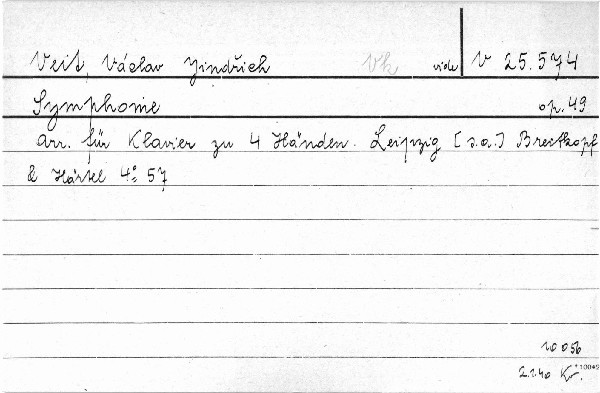 Veit, Václav Jindřich vk vide V 25.574
Symphonie op. 49
arr. für Klavier zu 4 Händen. Leipzig [s.a.] Breitkopf
& Härtel 4° 57
10056
2.140 Kr.